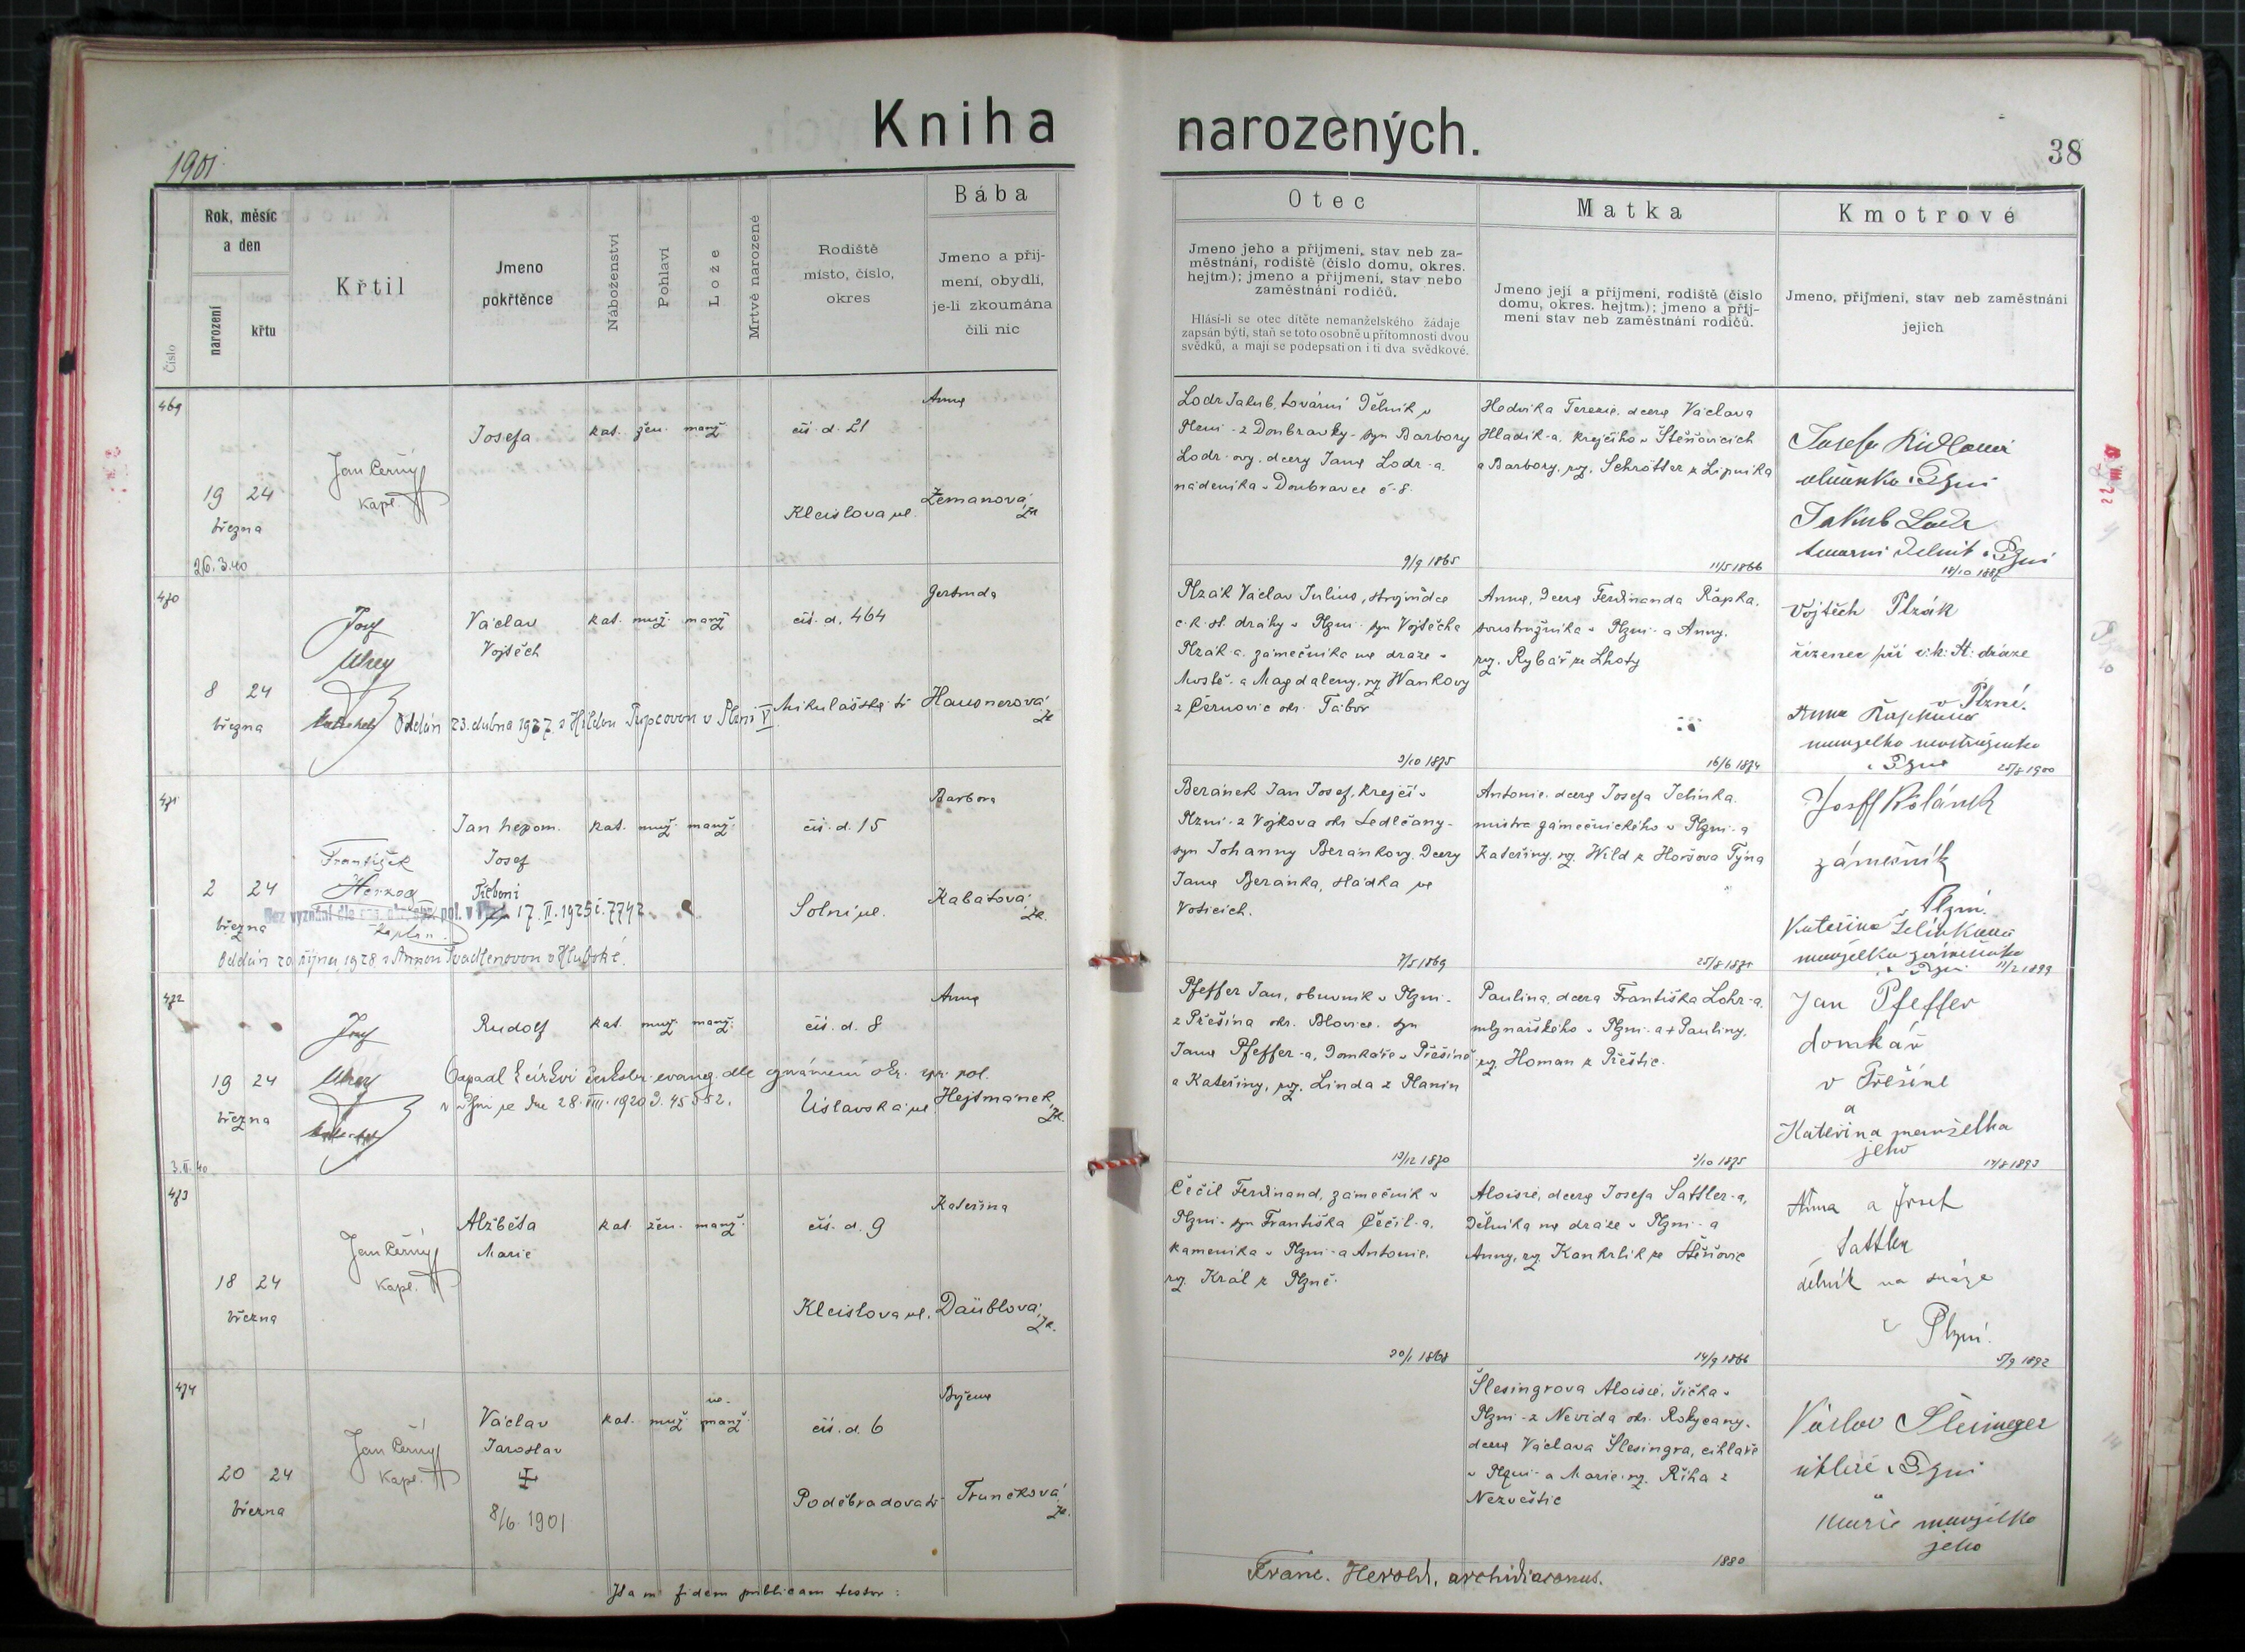 Kniha narozených.
1901
38
Číslo
Rok, měsíc
a den
narození
křtu
Křtil
Jmeno
pokřtěnce
Náboženství
Pohlaví
Lože
Mrtvě narozené
Rodiště
místo, číslo,
okres
Bába
Jmeno a příj-
mení, obydlí,
je-li zkoumána
čili nic
Otec
Jmeno jeho a přijmení, stav neb za-
městnání, rodiště (číslo domu, okres.
hejtm.); jmeno a přijmení, stav nebo
zaměstnání rodičů.
Hlásí-li se otec dítěte nemanželského žádaje
zapsán býti, staň se toto osobně u přítomnosti dvou
svědků, a mají se podepsati on i ti dva svědkové.
Matka
Jmeno její a přijmení, rodiště (číslo
domu, okres. hejtm.); jmeno a příj-
mení stav neb zaměstnání rodičů.
Kmotrové
Jmeno, přijmení, stav neb zaměstnání
jejich
469
19 24
března
26.3.40
Jan Černý
kapl.
Josefa
kat. žen. manž.
čís. d. 21
Kleislova ul.
Anna
Žemanová
zk
Lodr Jakub, tovární dělník v
Plzni - z Doubravky - syn Barbory
Lodr-ovy, dcery Jana Lodr-a,
nádeníka v Doubravce č. 8.
9/9 1865
Hedvika Terezie, dcera Václava
Hladík-a, krejčího v Štěňovicích
a Barbory, roz. Schrötter z Lipníka
11/5 1866
Jakub Lodr
18/10 1887
470
8 24
března
Josef
Václav
Vojtěch
kat. muž. manž.
čís. d. 464
Mikulášská tř.
Oddán 23. dubna 1927 s Hildou Pupcovou v Plzni V.
Gertruda
Hausnerová
zk
Plzák Václav Julius, strojvůdce
c. k. st. dráhy v Plzni - syn Vojtěcha
Plzák-a, zámečníka na dráze v
Mostě - a Magdaleny, roz. Wankovy
z Černovic okr. Tábor
3/10 1875
Anna, dcera Ferdinanda Řapka,
soustružníka v Plzni - a Anny,
roz. Rybář ze Lhoty
16/6 1874
Vojtěch Plzák
řízenec při c. k. st. dráze
v Plzně.
Anna Řapková
v Plzni
25/8 1900
471
2 24
března
František
Herzog
kaplan
Jan Nepom.
Josef
kat. muž. manž.
čís. d. 15
Solní ul.
Třeboni
17. II. 1925 č. 7742
Oddán 20 října 1928 s Annou Švadlenovou v Hluboké.
Barbora
Kabátová
zk.
Beránek Jan Josef, krejčí v
Plzni - z Vojkova okr. Sedlčany -
syn Johanny Beránkovy, dcery
Jana Beránka, sládka ve
Voticích.
7/5 1869
Antonie, dcera Josefa Jelínka,
mistra zámečnického v Plzni - a
Kateřiny, roz. Wild z Horšova Týna
zámečník
v Plzni.
Kateřina Jelínková
11/2 1899
472
19 24
března
3. II. 40
Josef
Rudolf
kat. muž. manž.
čís. d. 8
Úslavská ul.
v Plzni ze dne 28. VIII. 1920 č. 45552.
Anna
Hejtmánek
zk.
Pfeffer Jan, obuvník v Plzni -
z Přešína okr. Blovice, syn
Jana Pfeffer-a, domkáře v Přešíně
a Kateřiny, roz. Linda z Planin
19/12 1870
Paulina, dcera Františka Lohr-a,
mlynářského v Plzni - a + Pauliny,
roz. Homan z Přeštic.
3/10 1875
Jan Pfeffer
domkář
v Přešíně
a
Kateřina manželka
jeho
14/8 1893
473
18 24
března
Jan Černý
kapl.
Alžběta
Marie
kat. žen. manž.
čís. d. 9
Kleislova ul.
Kateřina
Daüblová
zk.
Čečil Ferdinand, zámečník v
Plzni - syn Františka Čečil-a,
kameníka v Plzni - a Antonie,
roz. Král z Plzně.
20/1 1868
Aloisie, dcera Josefa Sattler-a,
dělníka na dráze v Plzni - a
Anny, roz. Kankrlík ze Štěňovic
14/9 1866
Anna a Josef
Sattler
dělník na dráze
v Plzni.
5/9 1892
474
20 24
března
Jan Černý
kapl.
Václav
Jaroslav
8/6. 1901
kat. muž. ne-
manž.
čís. d. 6
Poděbradova tř.
Božena
Trunečková
zk.
Šlesingrova Aloisie, šička v
Plzni - z Nevida okr. Rokycany,
dcera Václava Šlesingra, cihláře
v Plzni - a Marie, roz. Říha z
Nezvěstic
1880
Václav Šlesinger
cihlář v Plzni
a
Marie manželka
jeho
Ita in fidem publicam testor:
Franc. Herold, archidiaconus.